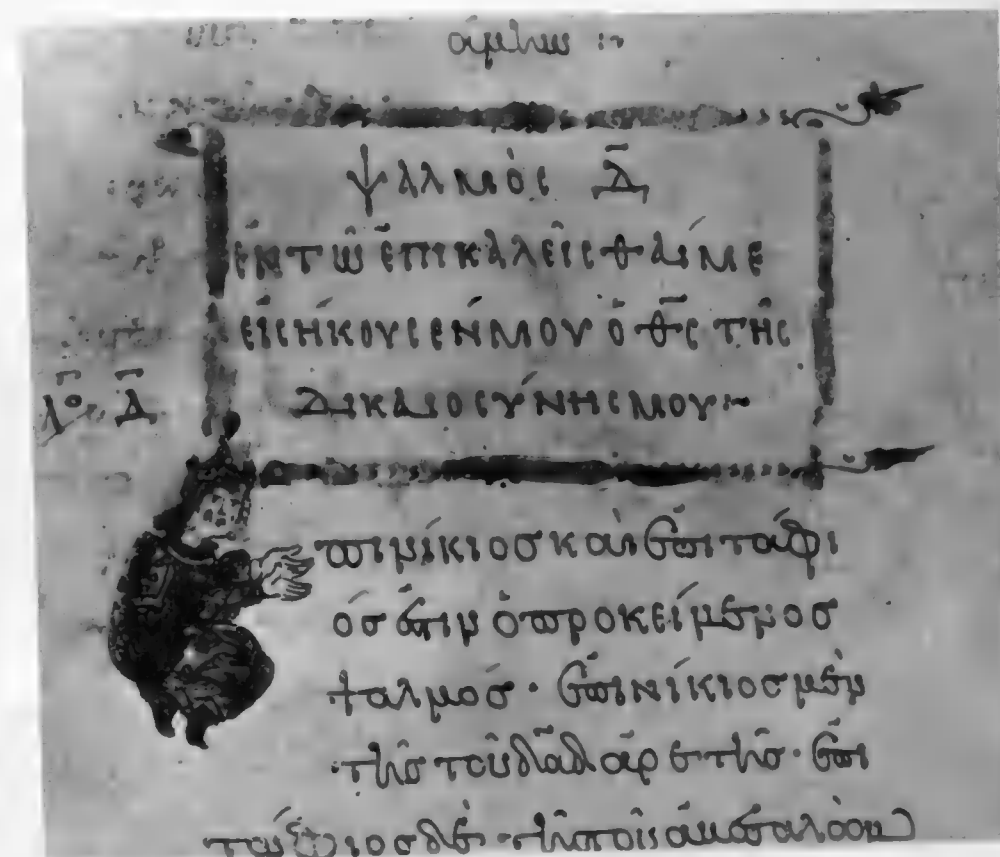 ΨΑΛΜῸС Δ̄
ἘΝ Τῼ͂ ἘΠΙΚΑΛΕΙ͂СΘΑΊ ΜΕ
ΕἸСΉΚΟΥСΕΝ ΜΟΥ Ὁ Θ̄С̄ ΤΗ͂С
ΔΙΚΑΙΟСΎΝΗС ΜΟΥ:~
πινίκιος καὶ ἐπιτάφι
ός ἐστιν ὁ προκείμενος
ψαλμός· ἐπινίκιος μὲν
τῆς τοῦ δᾱδ ἀρετῆς· ἐπι
τάφιος δὲ